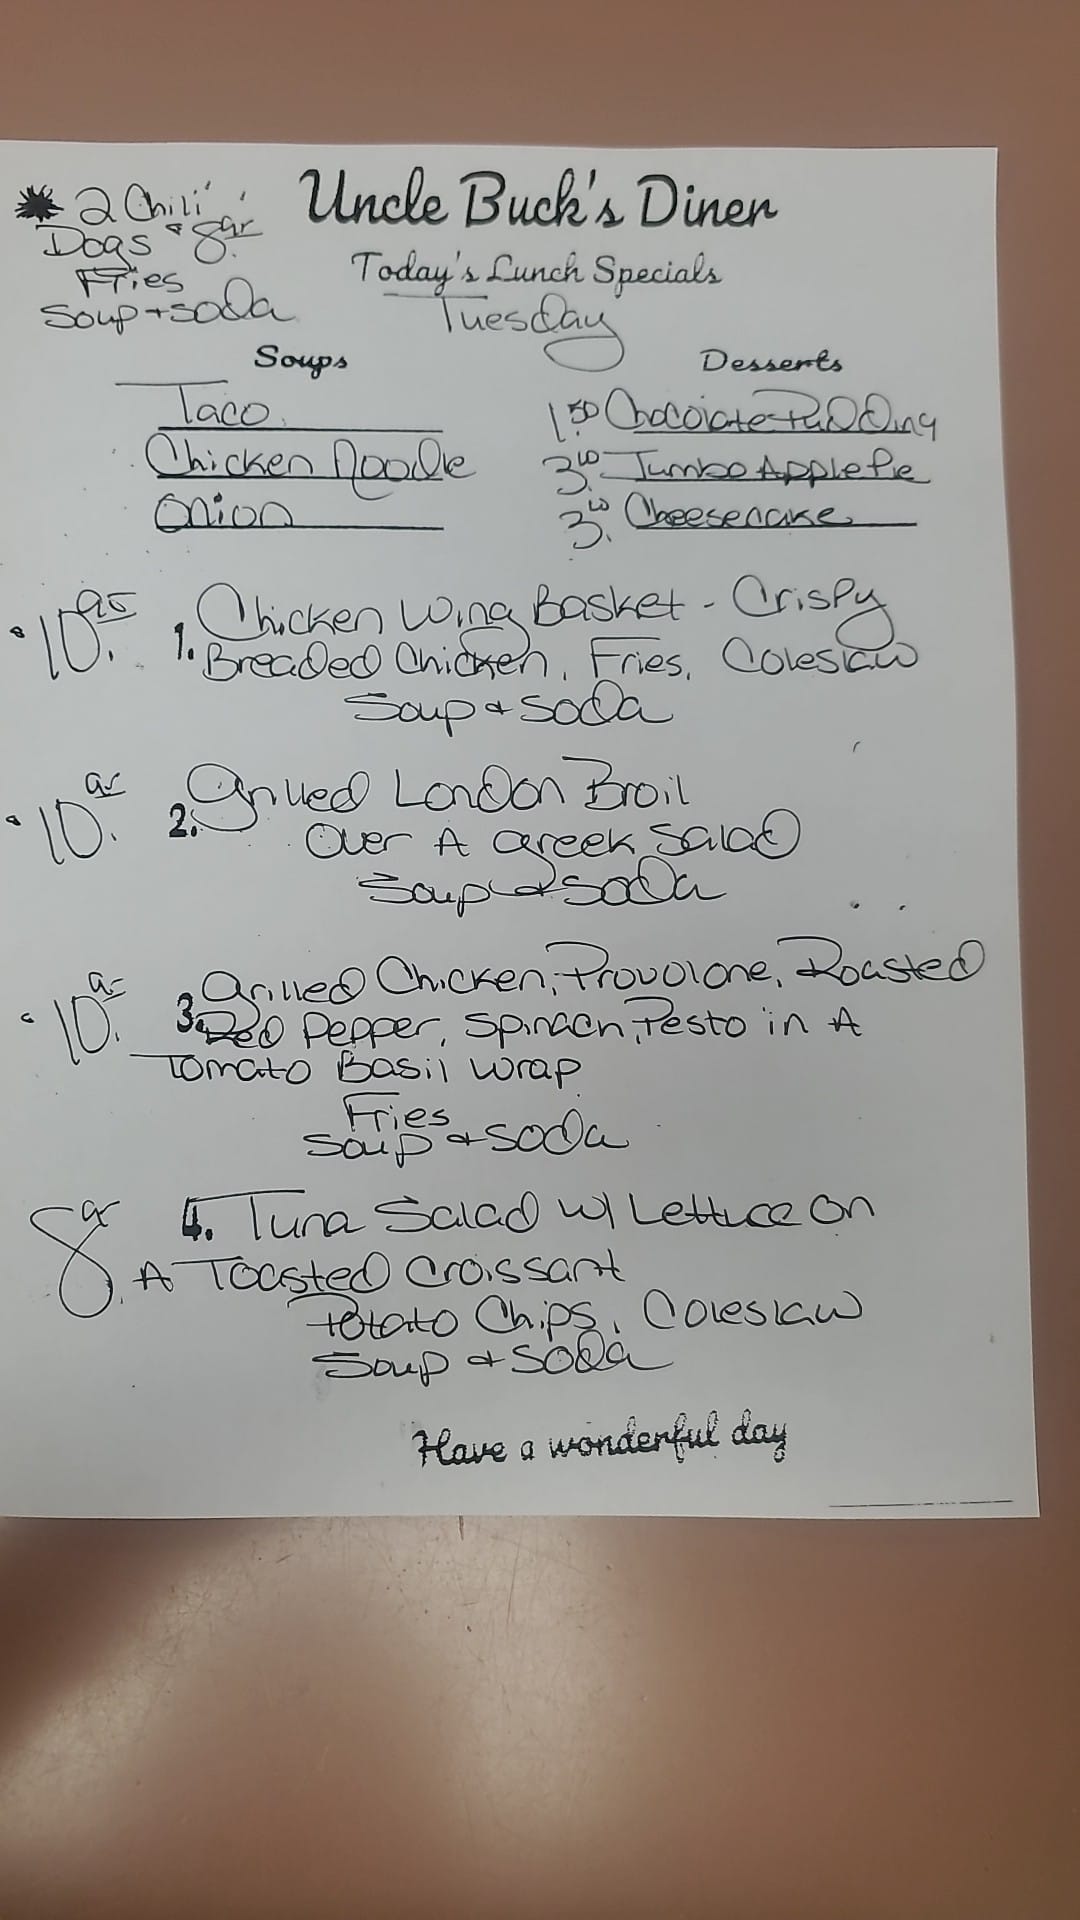 2 Chili
Dogs
Fries
Soup + soda
Uncle Buck's Diner
Today's Lunch Specials
Tuesday
Soups
Taco
Chicken Noodle
Onion
Desserts
1.50 Chocolate Pudding
3. Jumbo Apple Pie
3. Cheesecake
10.95 1. Chicken Wing Basket - Crispy
Breaded Chicken, Fries, Coleslaw
Soup & soda
10.95 2. Grilled London Broil
Over A Greek Salad
Soup & soda
10.95 3. Grilled Chicken, Provolone, Roasted
Red Pepper, Spinach, Pesto in A
Tomato Basil Wrap
Fries
Soup & soda
8.95 4. Tuna Salad W/ Lettuce on
A Toasted Croissant
Potato Chips, Coleslaw
Soup & soda
Have a wonderful day